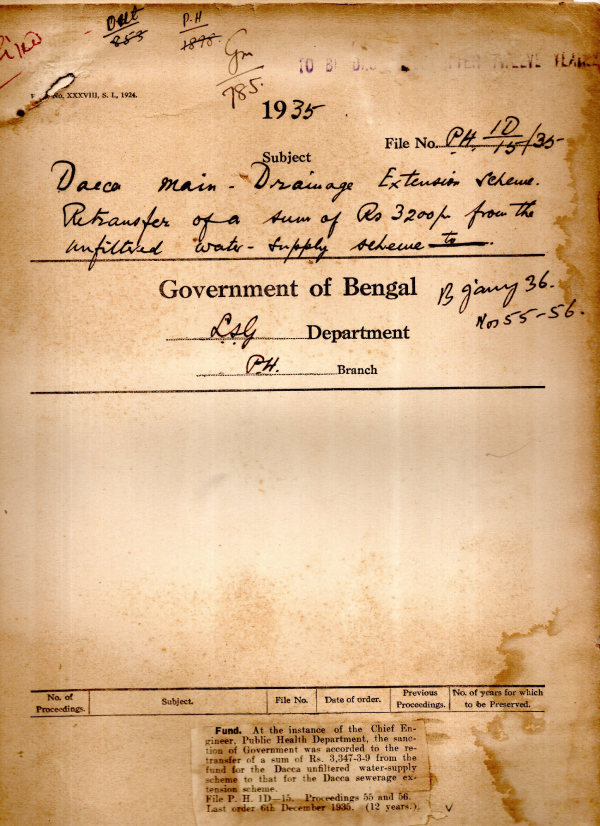 P.H
1898
Gm
785.
No. XXXVIII, S. I., 1924.
TO BE TWELVE YEARS
1935
File No. P.H. 1D/15/35
Subject
Dacca main-Drainage Extension Scheme.
Retransfer of a sum of Rs 3200/- from the
unfiltered water-supply scheme to
Government of Bengal
B Jany 36.
Nos 55-56.
L.S.G Department
P.H. Branch
No. of Proceedings. Subject. File No. Date of order. Previous Proceedings. No. of years for which to be Preserved.
Fund. At the instance of the Chief En-
gineer, Public Health Department, the sanc-
tion of Government was accorded to the re-
transfer of a sum of Rs. 3,347-3-9 from the
fund for the Dacca unfiltered water-supply
scheme to that for the Dacca sewerage ex-
tension scheme.
File P. H. 1D—15. Proceedings 55 and 56.
Last order 6th December 1935. (12 years.).